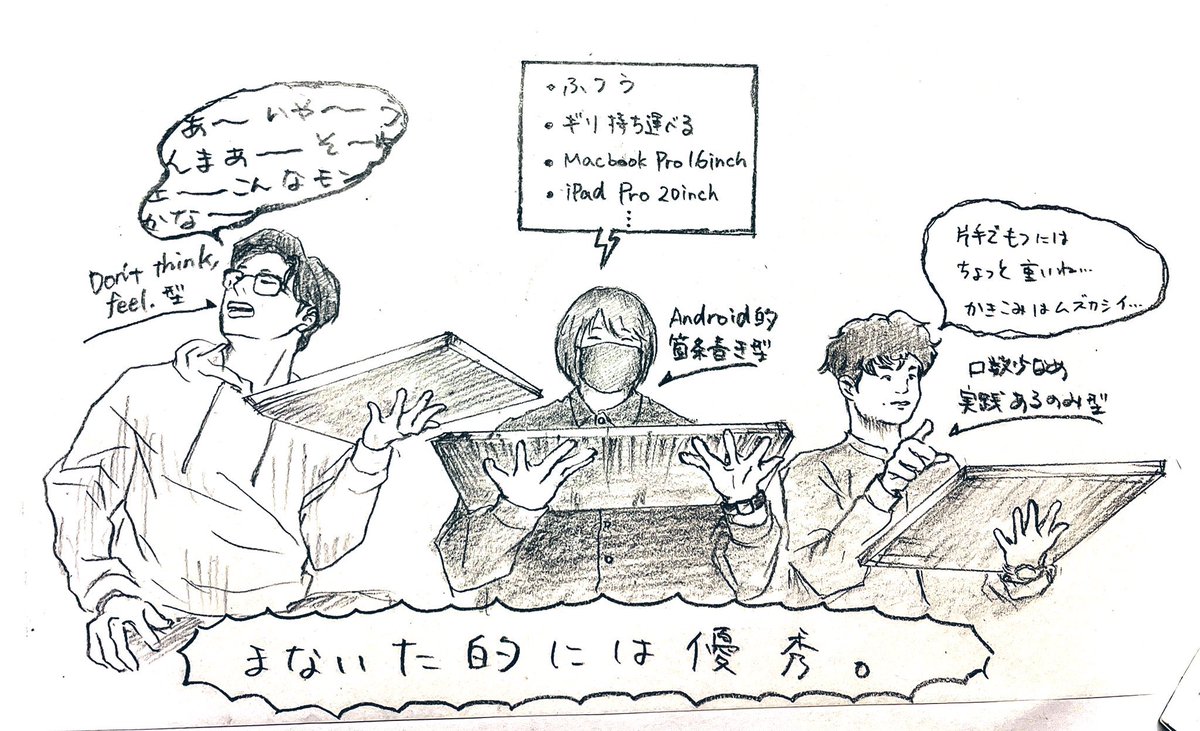 あ〜 いや〜 つ
んまあ〜 そ〜ゆ
〜こんなモン
かな〜
Don't think,
feel. 型
・ふつう
・ギリ持ち運べる
・Macbook Pro 16inch
・iPad Pro 20inch
⋮
Android的
箇条書き型
片手でもつには
ちょっと重いね…
かきこみはムズカシイ…
口数少なめ
実践あるのみ型
まないた的には優秀。